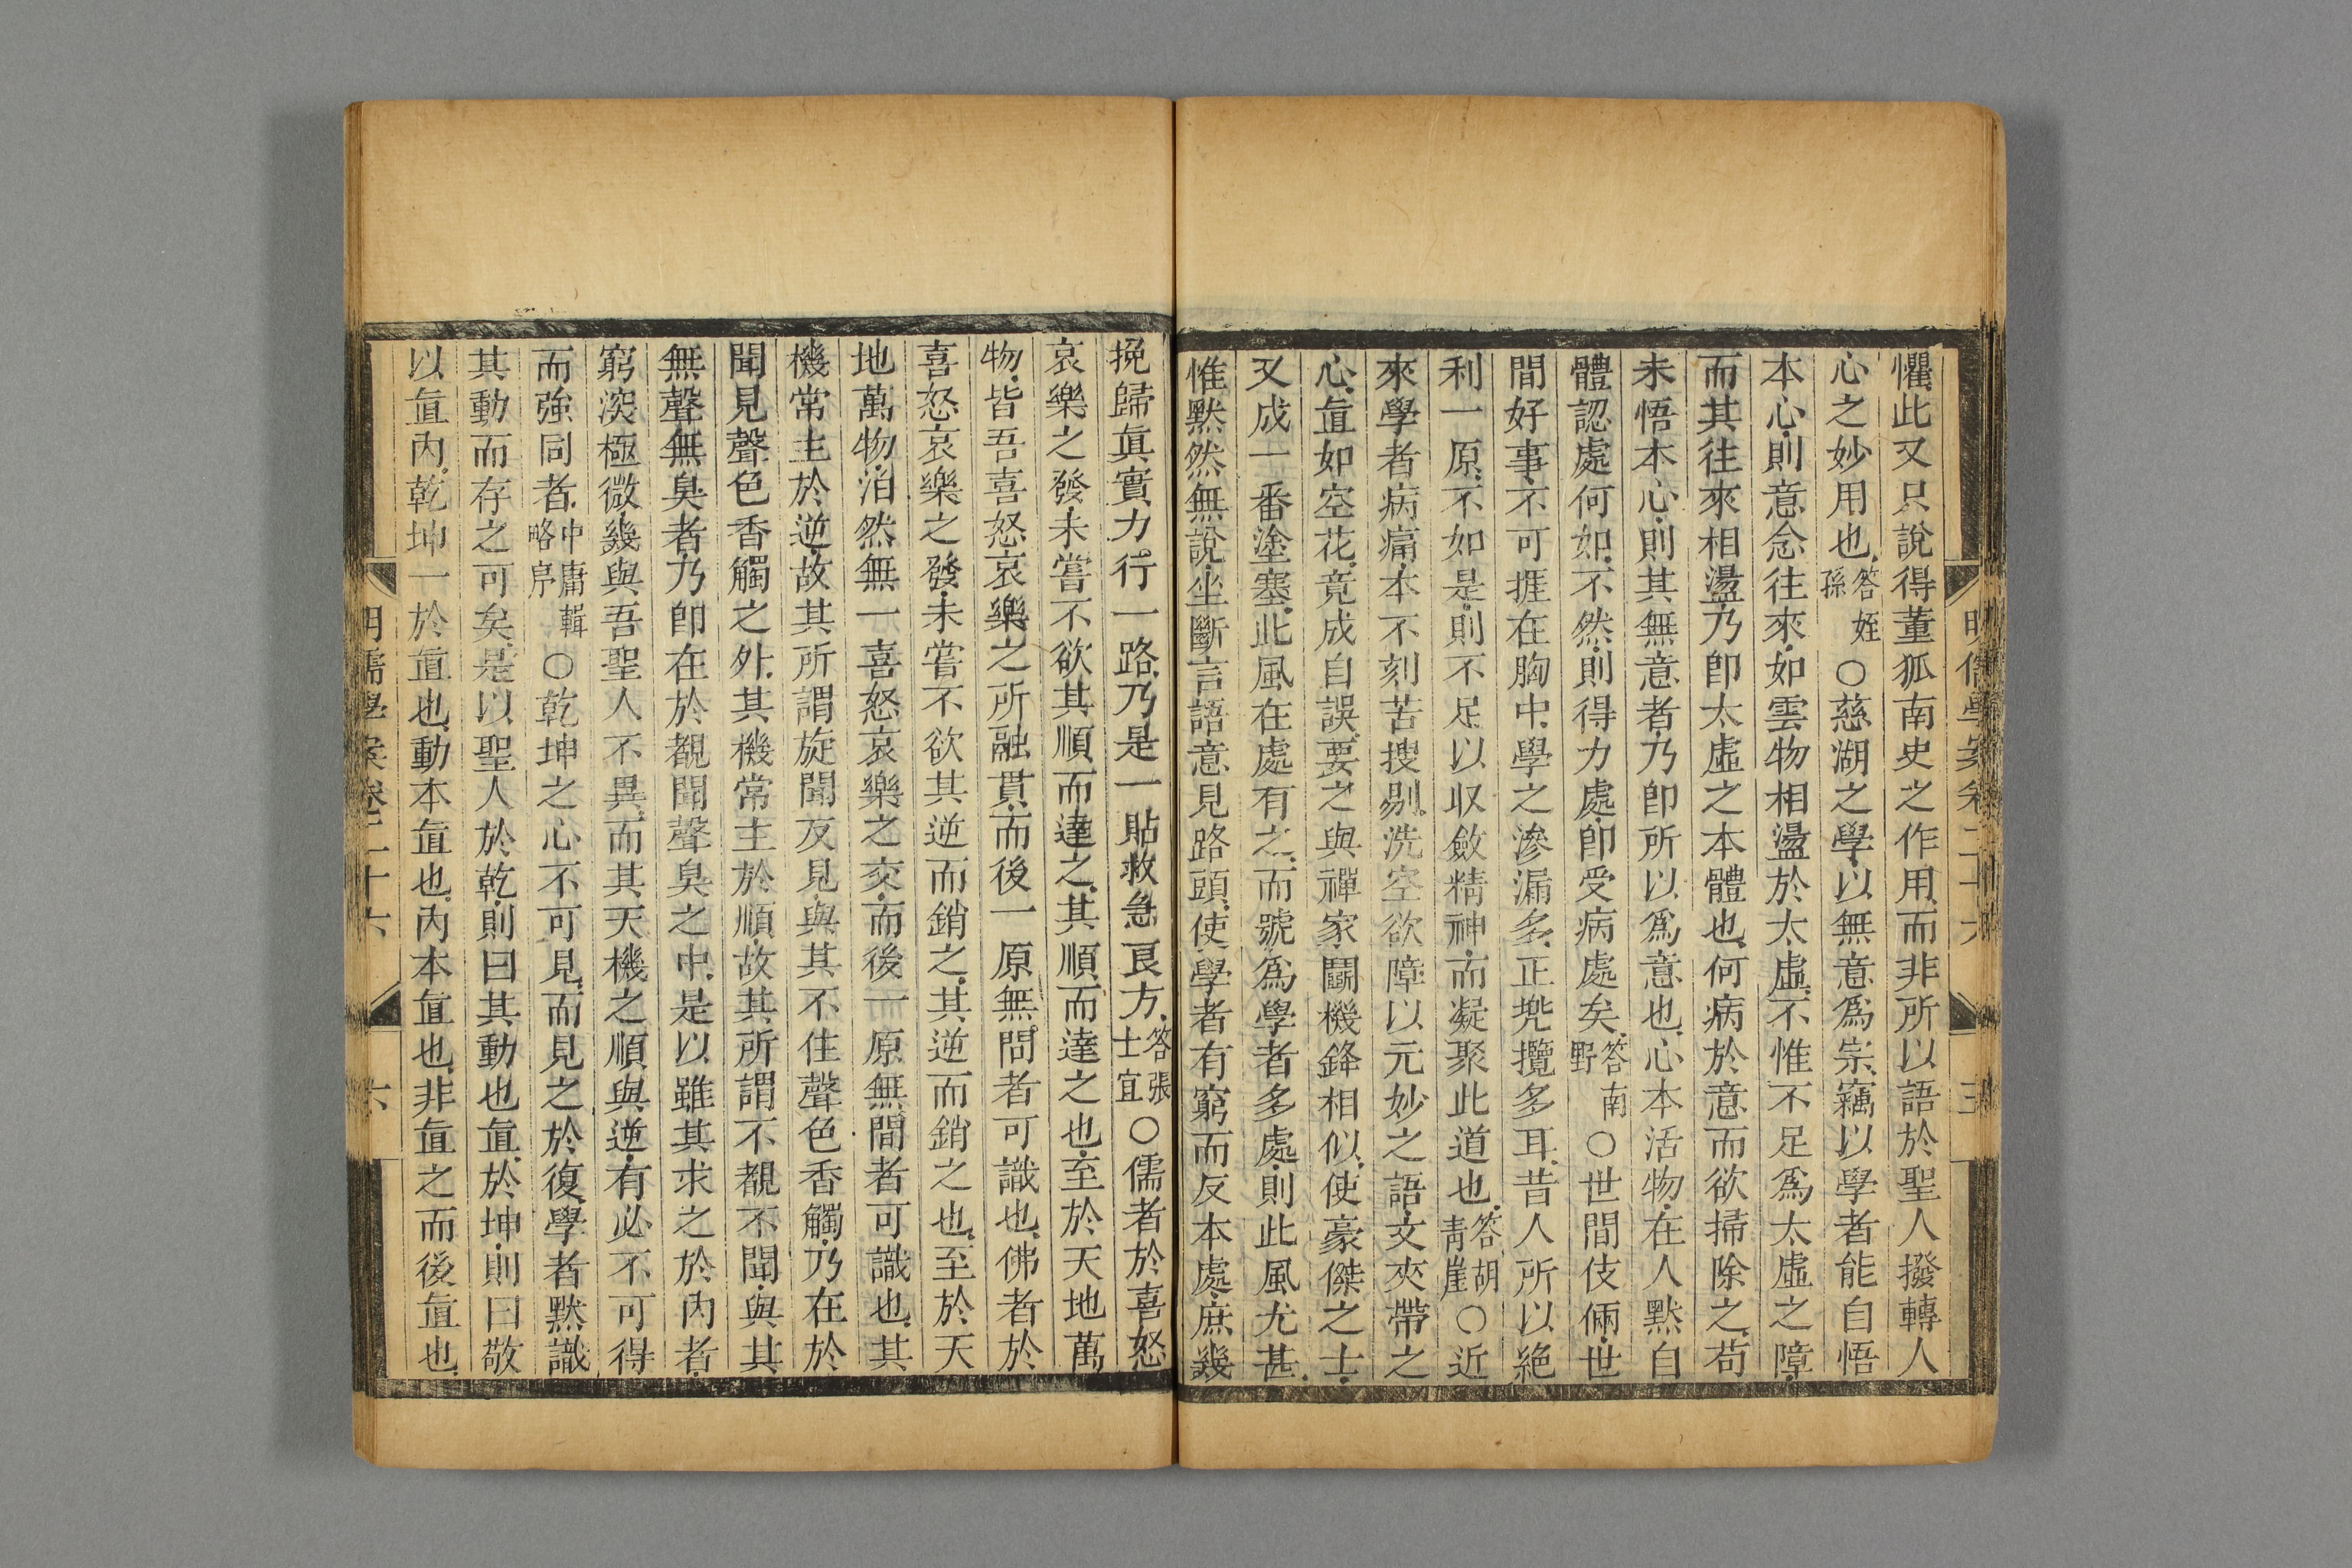 懼此又只說得董狐南史之作用而非所以語於聖人撥轉人
心之妙用也答姪孫○慈湖之學以無意爲宗竊以學者能自悟
本心則意念往來如雲物相盪於太虛不惟不足爲太虛之障
而其往來相盪乃卽太虛之本體也何病於意而欲掃除之苟
未悟本心則其無意者乃卽所以爲意也心本活物在人默自
體認處何如不然則得力處卽受病處矣答南野○世間伎倆世
間好事不可捱在胸中學之滲漏多正兠攬多耳昔人所以絶
利一原不如是則不足以収斂精神而凝聚此道也答胡靑崖○近
來學者病痛本不刻苦搜剔洗空欲障以元妙之語文夾帶之
心直如空花竟成自誤要之與禪家鬭機鋒相似使豪傑之士
又成一番塗塞此風在處有之而號爲學者多處則此風尤甚
惟默然無說坐斷言語意見路頭使學者有窮而反本處庶幾
挽歸眞實力行一路乃是一貼救急良方答張士宜○儒者於喜怒
哀樂之發未嘗不欲其順而達之其順而達之也至於天地萬
物皆吾喜怒哀樂之所融貫而後一原無間者可識也佛者於
喜怒哀樂之發未嘗不欲其逆而銷之其逆而銷之也至於天
地萬物泊然無一喜怒哀樂之交而後一原無間者可識也其
機常主於逆故其所謂旋聞反見與其不住聲色香觸乃在於
聞見聲色香觸之外其機常主於順故其所謂不覩不聞與其
無聲無臭者乃卽在於覩聞聲臭之中是以雖其求之於內者
窮深極微幾與吾聖人不異而其天機之順與逆有必不可得
而強同者中庸輯略序○乾坤之心不可見而見之於復學者默識
其動而存之可矣是以聖人於乾則曰其動也直於坤則曰敬
以直內乾坤一於直也動本直也內本直也非直之而後直也
明儒學案卷二十六
六